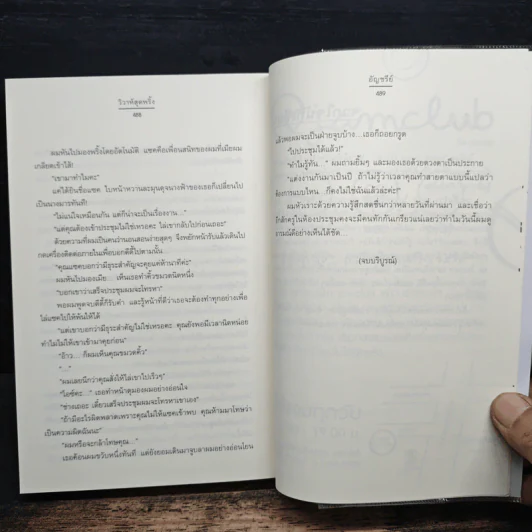 วิวาห์สุดพริ้ง
488
ผมหันไปมองพริ้งโดยอัตโนมัติ แชดคือเพื่อนสนิทของผมที่เมียผม
เกลียดเข้าไส้!
"เขามาทำไมคะ"
แค่ได้ยินชื่อแชด ใบหน้าหวานละมุนดุจนางฟ้าของเธอก็เปลี่ยนไป
เป็นนางมารทันที!
"ไม่แน่ใจเหมือนกัน แต่ก็น่าจะเป็นเรื่องงาน..."
"แต่คุณต้องเข้าประชุมไม่ใช่เหรอคะ ไล่เขากลับไปก่อนเถอะ"
ด้วยความที่ผมเป็นคนว่านอนสอนง่ายสุดๆ จึงพยักหน้ารับแล้วเดินไป
กดเครื่องติดต่อภายในเพื่อบอกตีตี้ไปตามนั้น
"คุณแชดบอกว่ามีธุระสำคัญจะคุยแค่ห้านาทีค่ะ"
ผมหันไปมองเมีย... เห็นเธอทำคิ้วขมวดนิดหนึ่ง
"บอกเขาว่าเสร็จประชุมผมจะโทรหา"
พอผมพูดจบตีตี้ก็รับคำ และรู้หน้าที่ดีว่าเธอจะต้องทำทุกอย่างเพื่อ
ไล่แชดไปให้พ้นให้ได้
"แต่เขาบอกว่ามีธุระสำคัญไม่ใช่เหรอคะ คุณยังพอมีเวลานิดหน่อย
ทำไมไม่ให้เขาเข้ามาคุยก่อน"
"อ้าว... ก็ผมเห็นคุณขมวดคิ้ว"
"..."
"ผมเลยนึกว่าคุณสั่งให้ไล่เขาไปเร็วๆ"
"ไอซ์คะ..." เธอทำหน้าดุมองผมอย่างอ่อนใจ
"ช่างเถอะ เดี๋ยวเสร็จประชุมผมจะโทรหาเขาเอง"
"ถ้ามีอะไรผิดพลาดเพราะคุณไม่ให้แชดเข้าพบ คุณห้ามมาโทษว่า
เป็นความผิดฉันนะ"
"ผมหรือจะกล้าโทษคุณ..."
เธอค้อนผมขวับหนึ่งทันที แต่ยังยอมเดินมาจูบลาผมอย่างอ่อนโยน
อัญชรีย์
489
แล้วพอผมจะเป็นฝ่ายจูบบ้าง...เธอก็ถอยกรูด
"ไปประชุมได้แล้ว!"
"ทำไมรู้ทัน..." ผมถามยิ้มๆ และมองเธอด้วยดวงตาเป็นประกาย
"แต่งงานกันมาเป็นปี ถ้าไม่รู้ว่าเวลาคุณทำสายตาแบบนี้แปลว่า
ต้องการแบบไหน ก็คงไม่ใช่ฉันแล้วล่ะค่ะ!"
ผมหัวเราะด้วยความรู้สึกสดชื่นกว่าหลายวันที่ผ่านมา และเชื่อว่า
อีกสักครู่ในห้องประชุมคงจะมีคนทักกันเกรียวแน่เลยว่าทำไมวันนี้ผมดู
อารมณ์ดีอย่างเห็นได้ชัด...
(จบบริบูรณ์)